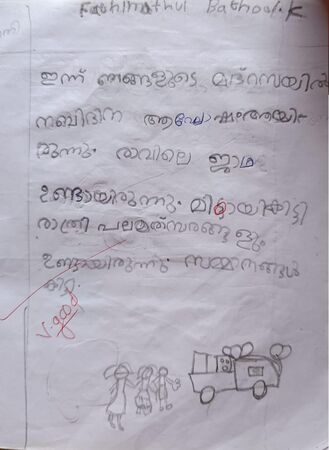 Fathimathul Bathool.K
ഇന്ന് ഞങ്ങളുടെ മദ്റസയിൽ
നബിദിന ആഘോഷമായി-
രുന്നു. രാവിലെ ജാഥ
ഉണ്ടായിരുന്നു. മിഠായികിട്ടി
രാത്രി പലമത്സരങ്ങളും
ഉണ്ടായിരുന്നു സമ്മാനങ്ങൾ
കിട്ടി.
V.good